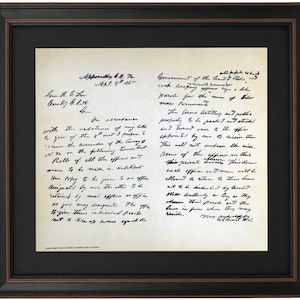 Appomattox C.H. Va.
Apl. 9th 1865
Gen. R. E. Lee
Comdg C.S.A.
Gen.
In accordance
with the substance of my letter
to you of the 8th inst. I propose to
receive the surrender of the Army of
N. Va. on the following terms
Rolls of all the officers and
men to be made in duplicate
One copy to be given to an officer
designated by me the other to be
retained by such officer or officers
as you may designate. The officers
to give their individual paroles
not to take up arms against the
Government of the United States
each company officer
parole for the men of their
commands
The Arms, Artillery and public
property to be parked and stacked
and turned over to the officer
appointed by me to receive them
This will not embrace the side
Arms of the officers
private
each officer and man will be
allowed to return to their homes
not to be disturbed by United
States Authority so long as they
observe their parole and the
laws in force where they may
reside.
Very